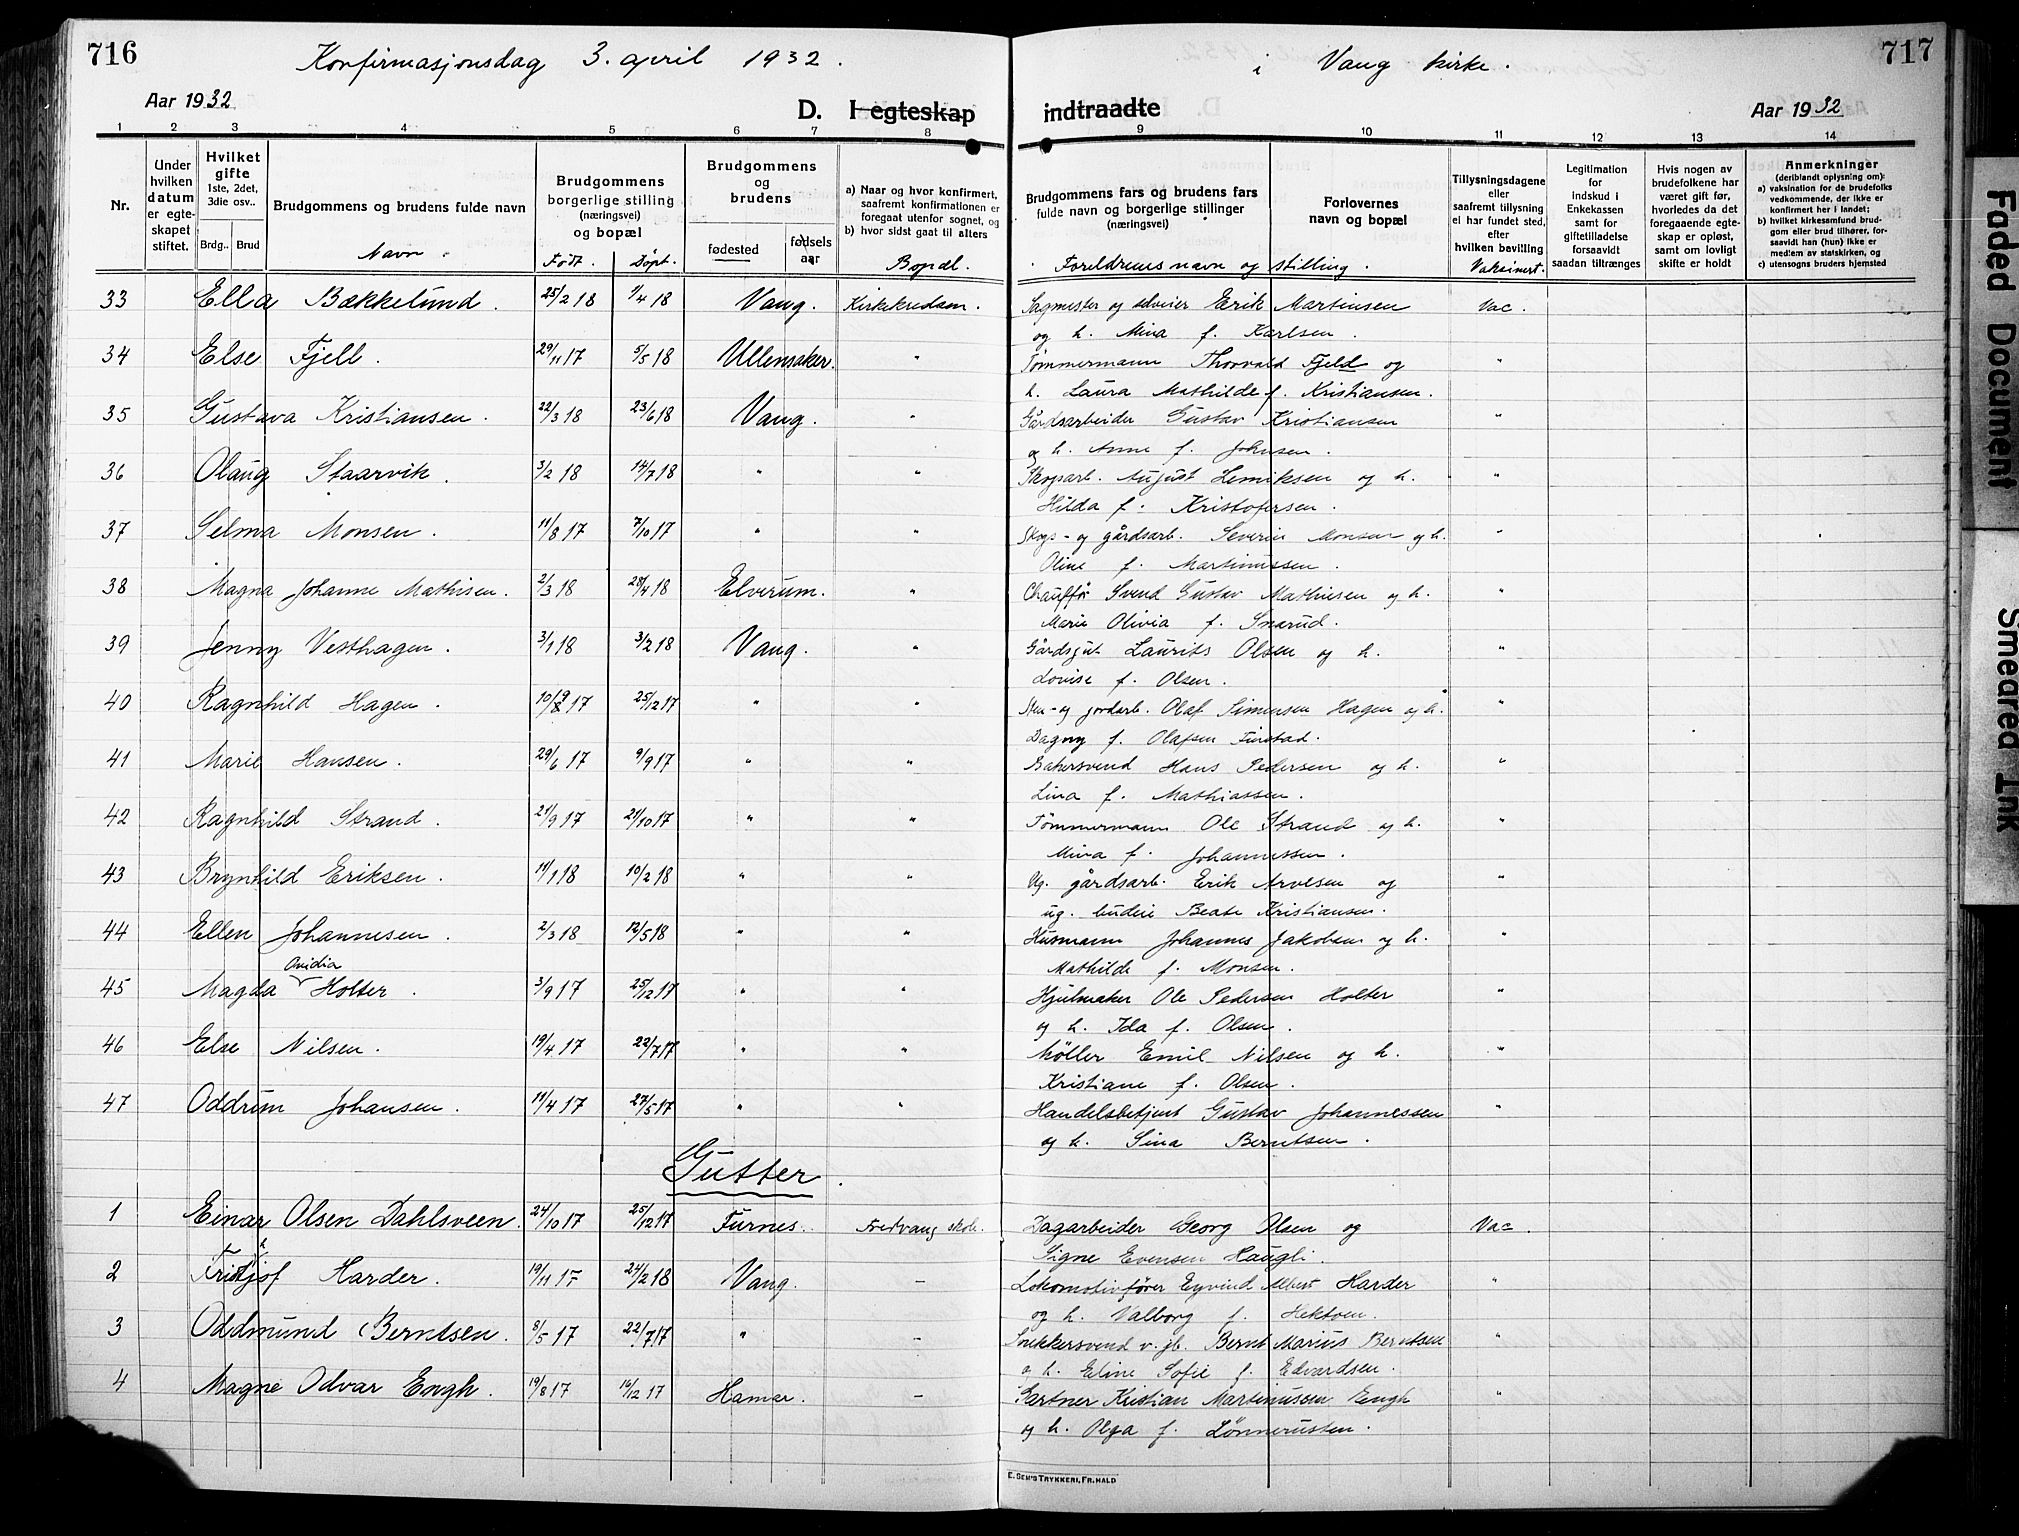 716
Konfirmasjonsdag 3. april 1932.
i Vang kirke.
717
Aar 1932
D. I egteskap indtraadte
Aar 1932
1 2 3 4 5 6 7 8 9 10 11 12 13 14
Nr.
Under hvilken datum er egteskapet stiftet.
Hvilket gifte
1ste, 2det, 3die osv..
Brdg.. Brud
Brudgommens og brudens fulde navn
Navn.
Brudgommens borgerlige stilling (næringsvei) og bopæl
Født. Døpt.
Brudgommens og brudens
fødested fødselsaar
a) Naar og hvor konfirmert, saafremt konfirmationen er foregaat utenfor sognet, og
b) hvor sidst gaat til alters
Bopæl.
Brudgommens fars og brudens fars fulde navn og borgerlige stillinger (næringsvei)
Forlovernes navn og bopæl
Foreldrenes navn og stilling.
Tillysningsdagene eller saafremt tillysning ei har fundet sted, efter hvilken bavilling
Vaksinert.
Legitimation for Indskud i Enkekassen samt for giftetilladelse forsaavidt saadan tiltrænges
Hvis nogen av brudefolkene har været gift før, hvorledes da det foregaaende egteskap er opløst, samt om lovligt skifte er holdt
Anmerkninger
(deriblandt oplysning om):
a) vaksination for de brudefolks vedkommende, der ikke er konfirmert her i landet;
b) hvilket kirkesamfund brudgom eller brud tilhører, forsaavidt han (hun) ikke er medlem av statskirken, og
c) utensogns bruders hjemsted
33 Ella Bækkelund. 25/2 18 1/4 18 Vang. Kirkekredsen. Sagmester og selveier Erik Martinsen Vac.
og h. Mina f. Karlsen.
34 Else Fjell. 29/11 17 5/5 18 Ullensaker. " Tømmermann Thorvald Fjeld og "
h. Laura Mathilde f. Kristiansen.
35 Gustava Kristiansen. 22/3 18 23/6 18 Vang. " Gårdsarbeider Gustav Kristiansen "
og h. Anne f. Johnsen.
36 Olaug Staarvik. 3/2 18 14/7 18 " " Skogsarb. August Lemiksen og h. "
Hilda f. Kristofersen.
37 Selma Monsen. 11/8 17 7/10 17 " " Skogs- og gårdsarb. Severin Monsen og h. "
Oline f. Martinussen.
38 Magna Johanne Mathisen. 2/3 18 28/4 18 Elverum. " Chauffør Svend Gustav Mathiesen og h. "
Marie Olivia f. Snarud.
39 Jenny Vesthagen. 3/1 18 3/2 18 Vang. " Gårdsgut. Laurits Olsen og h.
Lovise f. Olsen.
40 Ragnhild Hagen. 10/9 17 25/12 17 " " Sten- og jordarb. Olaf Simensen Hagen og h. "
Dagny f. Olafsen Finstad.
41 Marie Hansen. 29/6 17 9/9 17 " " Bakersvend Hans Pedersen og h. "
Lina f. Mathiassen.
42 Ragnhild Strand. 21/9 17 21/10 17 " " Tømmermann Ole Strand og h. "
Mina f. Johannessen.
43 Brynhild Eriksen. 11/1 18 10/2 18 " " Ug. gårdsarb. Erik Arvesen og "
ug. budeie Beate Kristiansen.
44 Ellen Johannesen. 2/3 18 12/5 18 " " Husmann Johannes Jakobsen og h. "
Mathilde f. Monsen.
45 Magda Ovidia Holter. 3/9 17 25/12 17 " " Hjulmaker Ole Pedersen Holter "
og h. Ida f. Olsen.
46 Else Nilsen. 19/4 17 22/7 17 " " Møller Emil Nilsen og h. "
Kristiane f. Olsen.
47 Oddrun Johansen. 11/4 17 27/5 17 " " Handelsbetjent Gustav Johannessen "
og h. Sina Berntsen.
Gutter.
1 Einar Olsen Dahlsveen. 24/10 17 25/12 17 Furnes. Fredvang skole. Dagarbeider Georg Olsen og Vac.
Signe Evensen Haugli.
2 Fridtjof Harder. 19/11 17 24/2 18 Vang. - Lokomotivfører Eyvind Albert Harder "
og h. Valborg f. Hektoen.
3 Oddmund Berntsen. 8/5 17 22/7 17 " - Snekkersvend v. jb. Bernt Marius Berntsen "
og h. Eline Sofie f. Edvardsen.
4 Magne Odvar Engh. 19/8 17 16/12 17 Hamar. - Gartner Kristian Martinussen Engh "
og h. Olga f. Lønnerusten.
E. SEM'S TRYKKERI, FR.HALD
Faded Document
Smeared Ink